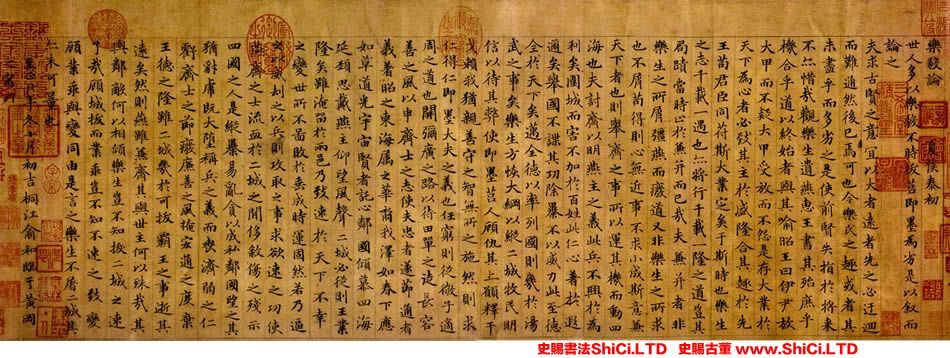 樂毅論 夏侯泰初
世人多以樂毅不時拔莒即墨為劣是以叙而
論之
夫求古賢之意宜以大者遠者先之必迂迴
而難通然後已焉可也今樂氏之趣或者其
未盡乎而多劣之是使前賢失指於將來
不亦惜哉觀樂生遺燕惠王書其殆庶乎
機合乎道以終始者與其喻昭王曰伊尹放
大甲而不疑大甲受放而不怨是存大業於
天下為心者必致其主於盛隆合其趣於先
王苟君臣同符斯大業定矣于斯時也樂生
之志千載一遇也亦將行千載一隆之道豈其
局蹟當時止於兼并而已哉夫兼并者非
樂生之所屑彊燕而廢道又非樂生之所求
也不屑苟得則心無近事不求小成斯意兼
天下者也則舉齊之事所以運其機而動四
海也夫討齊以明燕主之義此兵不興於為
利矣圍城而害不加於百姓此仁心著於遐
邇矣舉國不謀其功除暴不以威力此至德
全於天下矣邁全德以率列國則幾於湯
武之事矣樂生方恢大綱以縱二城牧民明
信以待其弊使即墨莒人顧仇其上願釋干
戈賴我猶親善守之智無所之施然則求
仁得仁即墨大夫之義也任窮則從微子適
周之道也開彌廣之路以待田單之徒長容
善之風以申齊士之志使夫忠者遂節通者
義著昭之東海屬之華裔我澤如春下應
如草道光宇宙賢者託心鄰國傾慕四海
延頸思戴燕主仰望風聲二城必從則王業
隆矣雖淹留於兩邑乃致速於天下不幸
之變世所不圖敗於垂成時運固然若乃逼
之以兵攻取之事求欲速之功使
燕齊之士流血於二城之間侈殺傷之殘示
四國之人是縱暴易亂貪以成鄰國望之其
猶豺虎既大墮稱兵之義而喪濟弱之仁
虧齊士之節廢廉善之風掩宏通之度棄
王德之隆雖二城幾於可拔霸王之事逝其
遠矣然則燕雖兼齊其與世主何以殊哉其
與鄰敵何以相傾樂生豈不知拔二城之速
了哉顧城拔而業乖豈不知不速之致變
顧業乖與變同由是言之樂生不屠二城其
亦未可量也
冬十月初吉桐江俞和臨于黃岡
史賜書法ShiCi.LTD 史賜古董 www.ShiCi.LTD